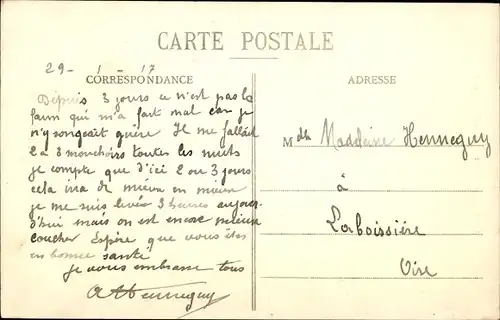 CARTE POSTALE
29 - 1 - 17
CORRESPONDANCE
ADRESSE
Dépuis 3 jours ce n'est pas la
faim qui m'a fait mal car je
n'y songeait guère Il me fallait
2 à 3 mouchoirs toutes les nuits
je compte que d'ici 2 ou 3 jours
cela ira de mieux en mieux
je me suis levée 3 heures aujour-
d'hui mais on est encore mieux
coucher Espère que vous êtes
en bonne santé
je vous embrasse tous
Henneguy
Melle Madeleine Henneguy
à
Laboissière
Oise